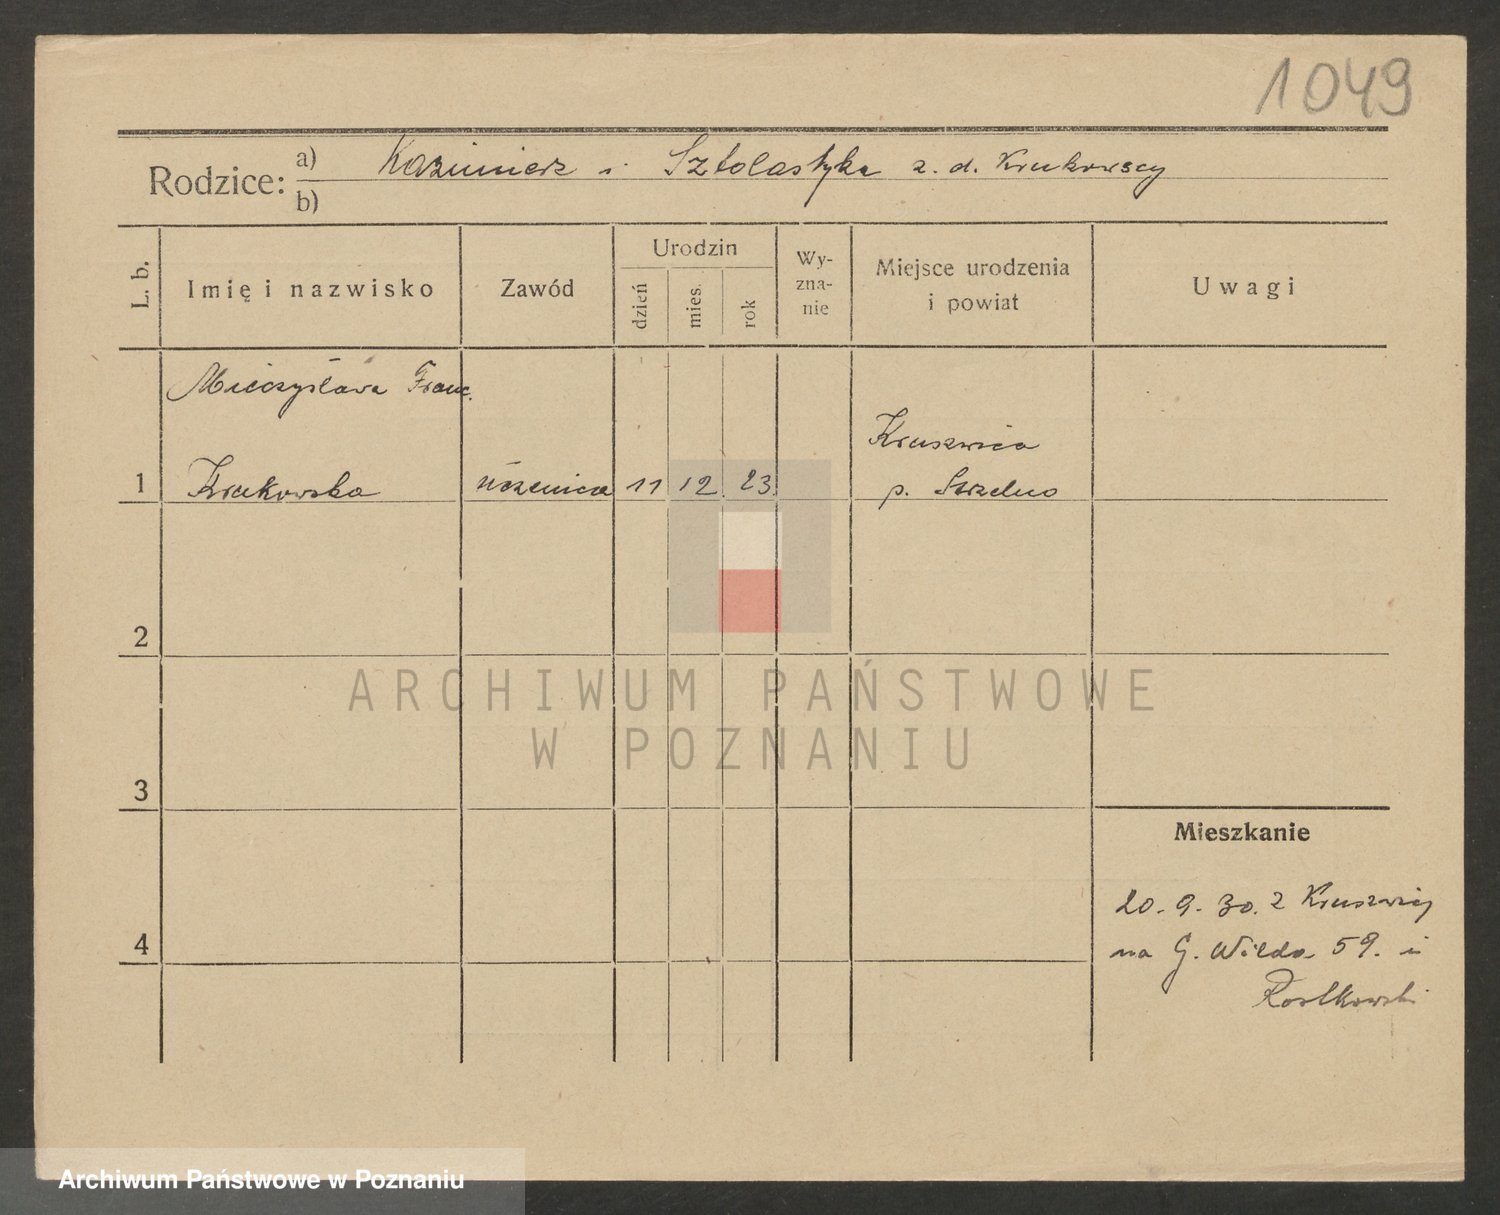 1049
Rodzice: a) Kazimierz i Sztolastyka z. d. Krukowscy
b)
L. b. Imię i nazwisko Zawód Urodzin dzień mies. rok Wy-zna-nie Miejsce urodzenia i powiat Uwagi
Mieczysława Franc.
Kruszwica
1 Krukowska uczenica 11 12 23 p. Strzelno
2
ARCHIWUM PAŃSTWOWE
W POZNANIU
3
Mieszkanie
20. 9. 30. z Kruszwicy
4 na G. Wilda 59. u
Archiwum Państwowe w Poznaniu